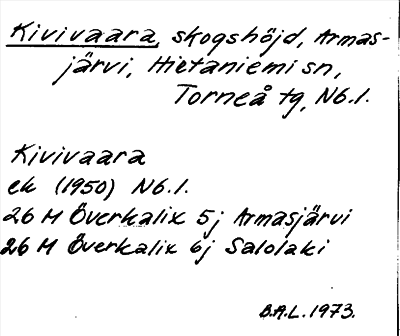 Kivivaara, skogshöjd, Armas-
järvi, Hietaniemi sn,
Torneå tg, Nb.l.
Kivivaara
ek (1950) Nb.l.
26 M Överkalix 5j Armasjärvi
26 M Överkalix 6j Salolaki
B.A.L. 1973.